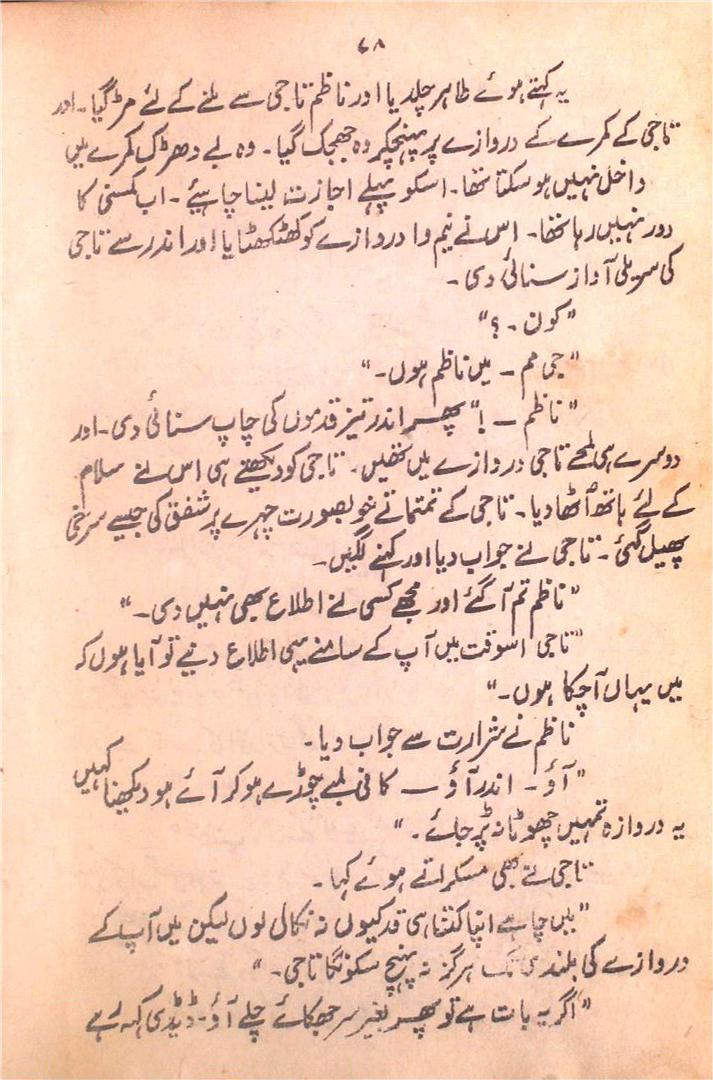 ۶۸
یہ کہتے ہوئے طاہر چلدیا اور ناظم تاجی سے ملنے کے لئے مڑ گیا۔ اور
تاجی کے کمرے کے دروازے پر پہنچکر وہ جھجک گیا۔ وہ بے دھڑک کمرے میں
داخل نہیں ہو سکتا تھا۔ اسکو پہلے اجازت لینا چاہیئے۔ اب کمسنی کا
دور نہیں رہا تھا۔ اس نے نیم وا دروازے کو کھٹکھٹایا اور اندر سے تاجی
کی سریلی آواز سنائی دی۔
"کون ۔ ؟"
"جی مم ۔ میں ناظم ہوں۔"
"ناظم ۔ !" پھر اندر تیز قدموں کی چاپ سنائی دی۔ اور
دوسرے ہی لمحے تاجی دروازے میں تھیں۔ تاجی کو دیکھتے ہی اس نے سلام
کے لئے ہاتھ اُٹھا دیا۔ تاجی کے تمتماتے خوبصورت چہرے پر شفق کی جیسے سرخی
پھیل گئی۔ تاجی نے جواب دیا اور کہنے لگیں۔
"ناظم تم آ گئے اور مجھے کسی نے اطلاع بھی نہیں دی۔"
"تاجی اسوقت میں آپ کے سامنے یہی اطلاع دینے تو آیا ہوں کہ
میں یہاں آ چکا ہوں۔"
ناظم نے شرارت سے جواب دیا۔
"آؤ ۔ اندر آؤ ۔ کافی لمبے چوڑے ہو کر آئے ہو دیکھنا کہیں
یہ دروازہ تمہیں چھوٹا نہ پڑ جائے۔"
تاجی نے بھی مسکراتے ہوئے کہا۔
"میں چاہے اپنا کتنا ہی قد کیوں نہ نکالی لوں لیکن میں آپ کے
دروازے کی بلندی تک ہرگز نہ پہنچ سکونگا تاجی۔"
"اگر یہ بات ہے تو پھر بغیر سر جھکائے چلے آؤ۔ ڈیڈی کہہ رہے